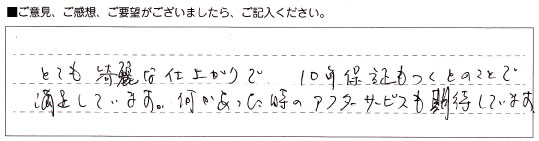 ■ご意見、ご感想、ご要望がございましたら、ご記入ください。
とても綺麗な仕上がりで 10年保証もつくとのことで
満足しています。何かあった時のアフターサービスも期待しています